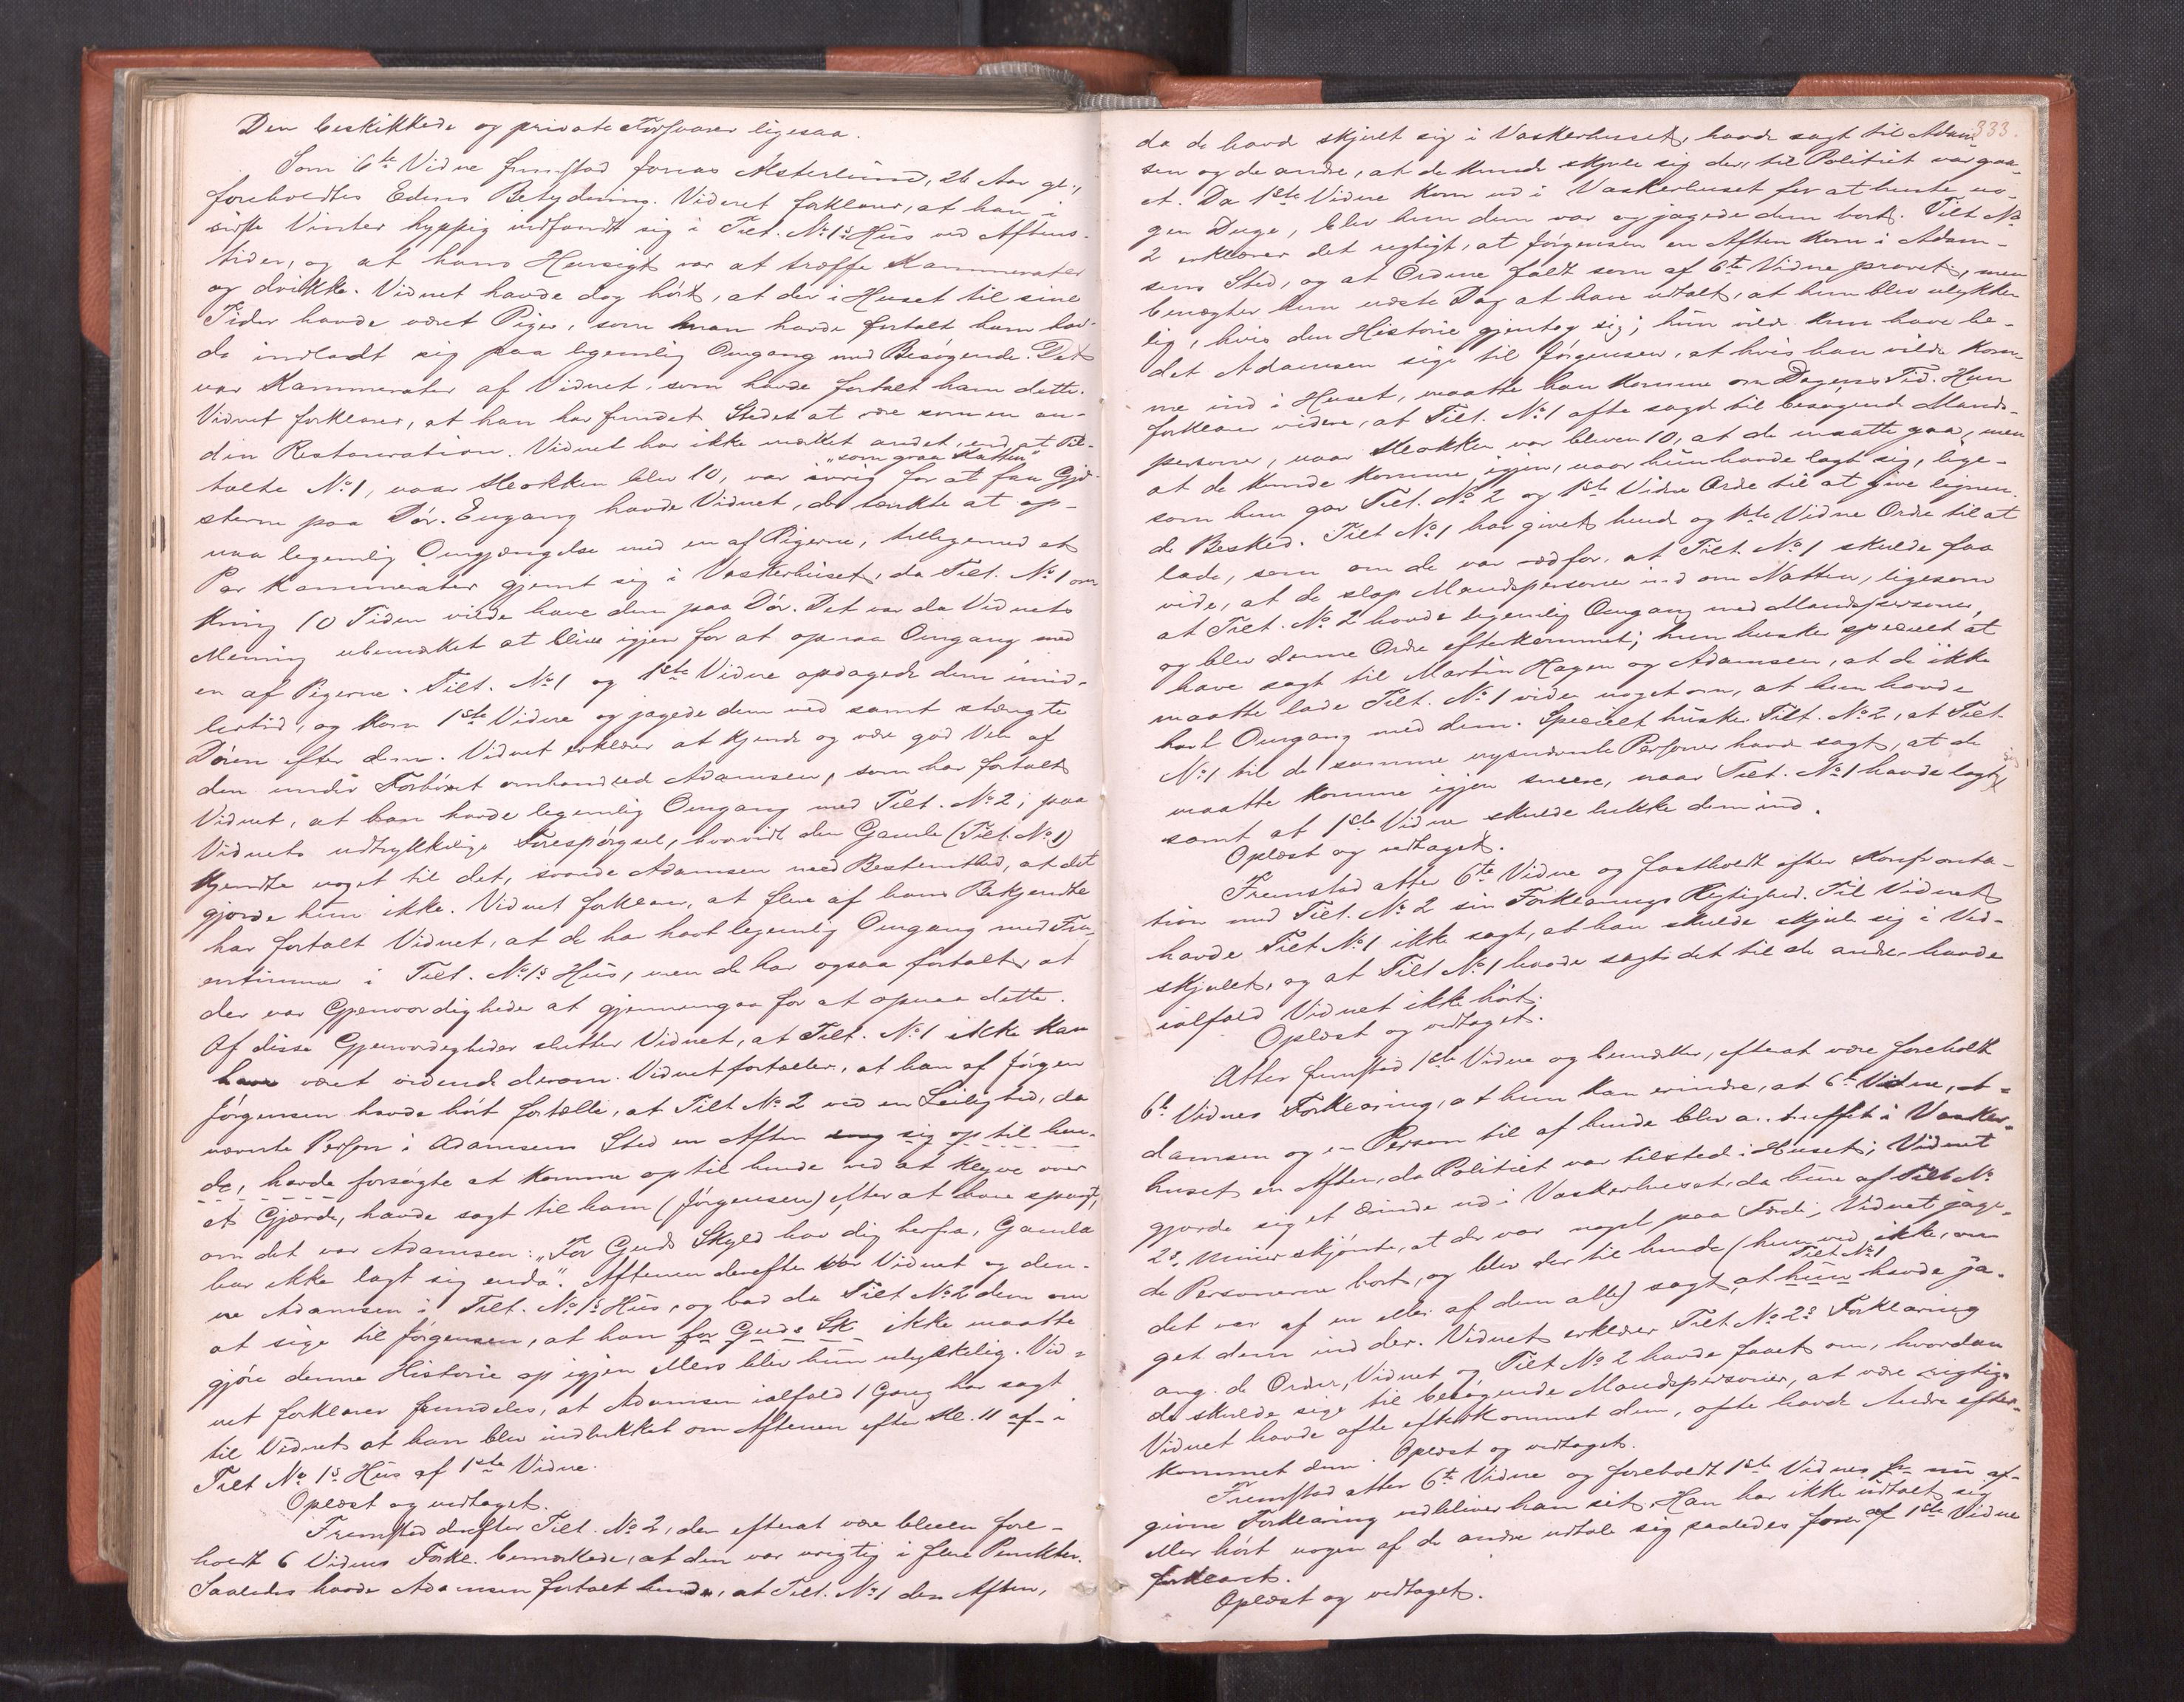 Den beskikkede og private Forsvarer ligesaa.
Som 6te Vidne fremstod Jonas Østerlund, 26 Aar gl.,
foreholdtes Edens Betydning. Vidnet forklarer, at han i
sidste Vinter hyppig indfandt sig i Tilt. No 1s Hus ved Aftens-
tider, og at hans Hensigt var at træffe Kammerater
og drikke. Vidnet havde dog hört, at der i Huset til sine
Tider havde været Piger, som man havde fortalt ham hav-
de indladt sig paa legemlig Omgang med Besögende. Det
var Kammerater af Vidnet, som havde fortalt ham dette.
Vidnet forklarer, at han har fundet Stedet at være som en an-
den Restauration. Vidnet har ikke mærket andet, end at Til-
talte No 1, naar Klokken blev 10, var ivrig "som graa Katten" for at faa Gjæ-
sterne paa Dör. Engang havde Vidnet, der tænkte at op-
naa legemlig Omgjængelse med en af Pigerne, tilligemed et
Par Kammerater gjemt sig i Vaskerhuset, da Tilt. No 1 om-
kring 10 Tiden vilde have dem paa Dör. Det var da Vidnets
Mening ubemærket at blive igjen for at opnaa Omgang med
en af Pigerne. Tilt. No 1 og 1ste Vidne opdagede dem imid-
lertid, og kom 1ste Vidne og jagede dem ud samt stængte
Dören efter dem. Vidnet erklærer at kjende og være god Ven af
den under Forhöret omhandlede Adamsen, som har fortalt
Vidnet, at han havde legemlig Omgang med Tilt. No 2; paa
Vidnets udtrykkelige Forespörgsel, hvorvidt den Gamle (Tilt. No 1)
kjendte noget til det, svarede Adamsen med Bestemthed, at det
gjorde hun ikke. Vidnet forklarer, at flere af hans Bekjendte
har fortalt Vidnet, at de har havt legemlig Omgang med Fru-
entimmer i Tilt. No 1s Hus, men de har ogsaa fortalt, at
der var Gjenvordigheder at gjennemgaa for at opnaa dette.
Af disse Gjenvordigheder slutter Vidnet, at Tilt. No 1 ikke kan
have været vidende derom. Vidnet fortæller, at han af Jörgen
Jörgensen havde hört fortælle, at Tilt No 2 ved en Leilighed, da
nævnte Person i Adamsens Sted en Aften sneg sig op til hen-
de, havde forsögt at komme op til hende ved at klyve over
et Gjærde, havde sagt til ham (Jörgensen) efter at have spurgt,
om det var Adamsen: "For Guds Skyld har dig herfra, Gamla
har ikke lagt sig enda". Aftenen derefter var Vidnet og den-
ne Adamsen i Tilt. No 1s Hus, og bad da Tilt No 2 dem om
at sige til Jörgensen, at han for Guds Sk ikke maatte
gjöre denne Historie op igjen ellers blev hun ulykkelig. Vid-
net forklarer fremdeles, at Adamsen ialfald 1 Gang har sagt
til Vidnet at han blev indlukket om Aftenen efter Kl. 11 af i
Tilt No 1s Hus af 1ste Vidne.
Oplæst og vedtaget.
Fremsted derefter Tilt. No 2, der efterat være bleven fore-
holdt 6 Vidnes Forkl. bemærkede, at den var urigtig i flere Punkter.
Saaledes havde Adamsen fortalt hende, at Tilt. No 1 den Aften,
333.
da de havde skjult sig i Vaskerhuset, havde sagt til Adam-
sen og de andre, at de kunde skjule sig der, til Politiet var gaa-
et. Da 1ste Vidne kom ud i Vaskerhuset for at hente no-
gen Duge, blev hun dem var og jagede dem bort. Tilt No
2 erklærer det rigtigt, at Jörgensen en Aften kom i Adam-
sens Sted, og at Ordene faldt som af 6te Vidne provet, men
benægter hun næste Dag at have udtalt, at hun blev ulykke-
lig, hvis den Historie gjentog sig; hun vilde kun have be-
det Adamsen sige til Jörgensen, at hvis han vilde kom-
me ind i Huset, maatte han komme om Dagens Tid. Hun
forklarer videre, at Tilt. No 1 ofte sagde til besögende Mands-
personer, naar Klokken var bleven 10, at de maatte gaa, men
at de kunde komme igjen, naar hun havde lagt sig, lige-
som hun gav Tilt. No 2 og 1ste Vidne Ordre til at give lignen-
de Besked. Tilt No 1 har givet hende og 1ste Vidne Ordre til at
lade, som om de var ræd for, at Tilt. No 1 skulde faa
vide, at de slap Mandspersoner ind om Natten, ligesom
at Tilt. No 2 havde legemlig Omgang med Mandspersoner,
og blev denne Ordre efterkommet; hun husker specielt at
have sagt til Martin Hagen og Adamsen, at de ikke
maatte lade Tilt. No 1 vide noget om, at hun havde
havt Omgang med dem. Specielt husker Tilt. No 2, at Tilt
No 1 til de samme nysnævnte Personer havde sagt, at de
maatte komme igjen senere, naar Tilt. No 1 havde lagt sig
samt at 1ste Vidne skulde lukke dem ind.
Oplæst og vedtaget.
Fremstod atter 6te Vidne og fastholdt efter Konfronta-
tion med Tilt. No 2 sin Forklarings Rigtighed. Til Vidnet
havde Tilt No 1 ikke sagt, at han skulde skjule sig i Ved-
skjulet, og at Tilt No 1 havde sagt det til de andre havde
ialfald Vidnet ikke hört.
Oplæst og vedtaget.
Atter fremstod 1ste Vidne og bemærker, efterat være foreholdt
6te Vidnes Forklaring, at hun kan erindre, at 6te Vidne, A-
damsen og en Person til af hende blev antruffet i Vasker-
huset en Aften, da Politiet var tilsted i Huset; Vidnet
gjorde sig et Ærinde ud i Vaskerhuset, da hun af Tilt No
2s Miner skjönte, at der var noget paa Færde; Vidnet jage-
de Personerne bort, og blev der til hende (hun ved ikke, om
det var af en eller af dem alle) sagt, at hun Tilt. No 1 havde ja-
get dem ind der. Vidnet erklærer Tilt No 2s Forklaring
ang. de Ordrer, Vidnet og Tilt No 2 havde faaet om, hvordan
de skulde sige til besögende Mandspersoner, at være rigtig.
Vidnet havde ofte efterkommet dem, ofte havde Andre efter-
kommet dem. Oplæst og vedtaget.
Fremstod atter 6te Vidne og foreholdt 1ste Vidnes nu af-
givne Forklaring vedbliver han sit. Han har ikke udtalt sig
eller hört nogen af de andre udtale sig saaledes som af 1ste Vidne
forklaret.
Oplæst og vedtaget.